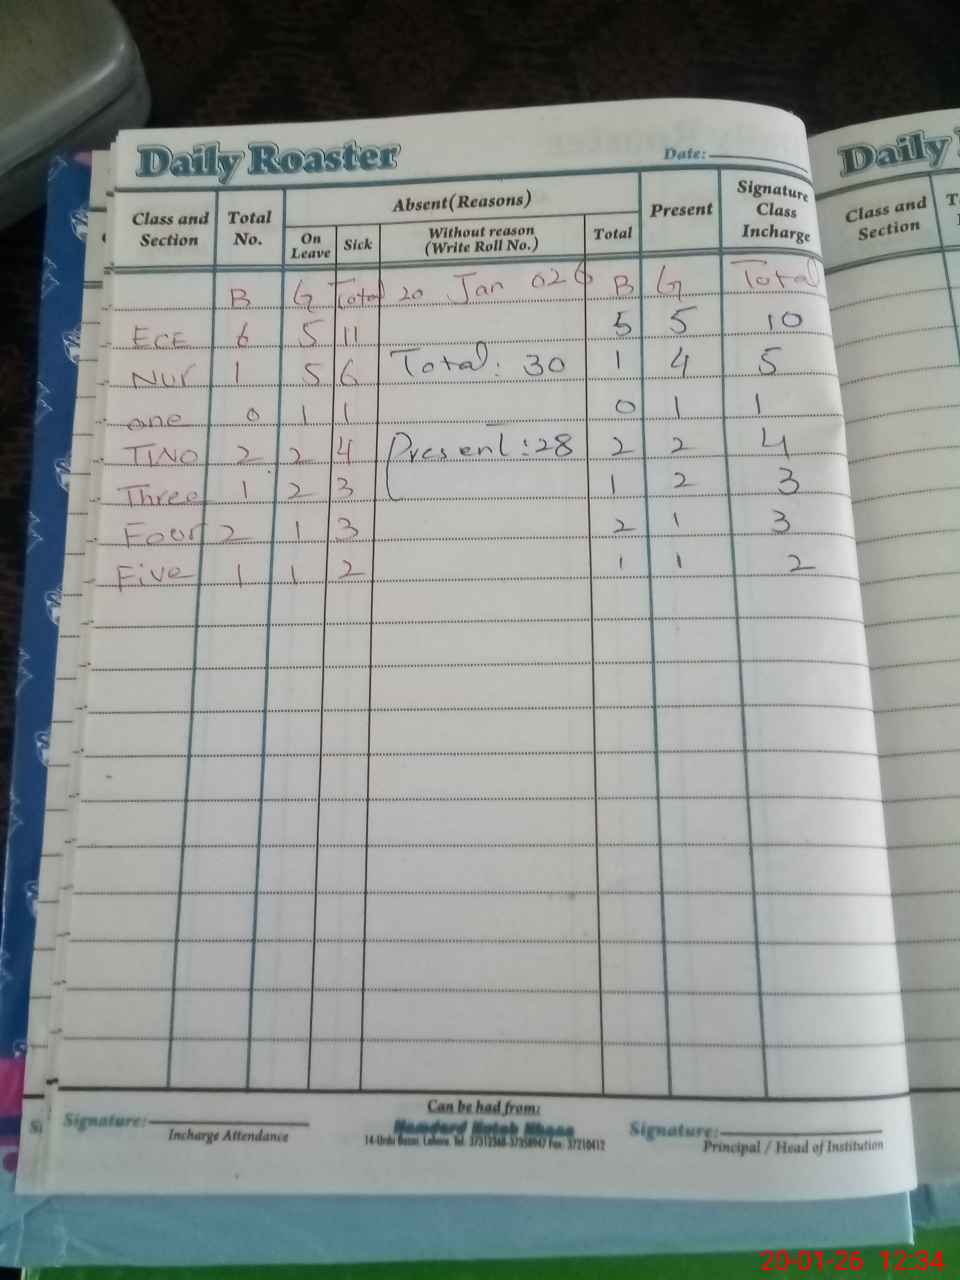 Daily Roaster
Date:
Class and Section Total No. Absent(Reasons) Present Signature Class Incharge
On Leave Sick Without reason (Write Roll No.) Total
B G Total 20 Jan 026 B G Total
ECE 6 5 11 5 5 10
Nur 1 5 6 Total: 30 1 4 5
one 0 1 1 0 1 1
TWO 2 2 4 Present: 28 2 2 4
Three 1 2 3 1 2 3
Four 2 1 3 2 1 3
Five 1 1 2 1 1 2
Signature:
Incharge Attendance
Can be had from:
Hamdard Kutab Khana
14-Urdu Bazar, Lahore. Tel:
Signature:
Principal / Head of Institution
Daily
Class and Section
Si
20-01-26 12:34